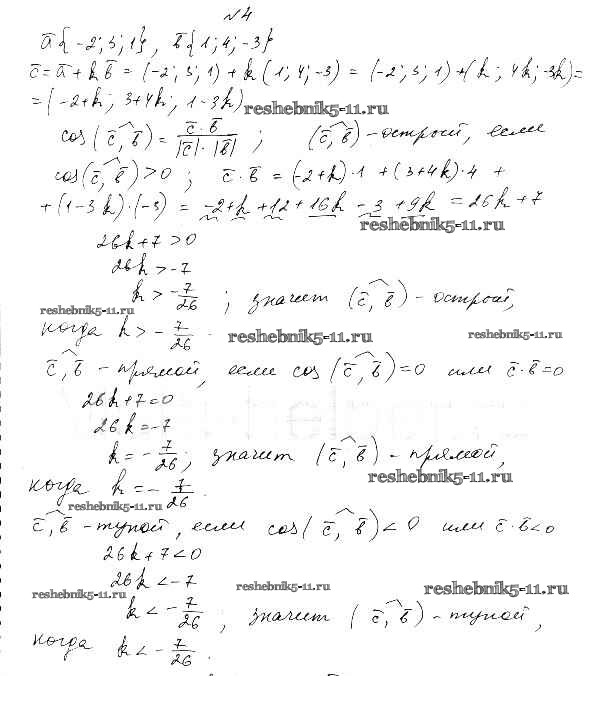 №4
ā{-2; 3; 1}, b̄{1; 4; -3}
c̄ = ā + k b̄ = (-2; 3; 1) + k(1; 4; -3) = (-2; 3; 1) + (k; 4k; -3k) =
= (-2+k; 3+4k; 1-3k) reshebnik5-11.ru
cos(c̄, b̄) = c̄·b̄ / |c̄|·|b̄| ; (c̄, b̄) - острый, если
cos(c̄, b̄) > 0 ; c̄·b̄ = (-2+k)·1 + (3+4k)·4 +
+ (1-3k)·(-3) = -2+k+12+16k-3+9k = 26k+7
reshebnik5-11.ru
26k+7 > 0
26k > -7
k > -7/26 ; значит (c̄, b̄) - острый,
reshebnik5-11.ru
когда k > -7/26 . reshebnik5-11.ru reshebnik5-11.ru
c̄, b̄ - прямой, если cos(c̄, b̄) = 0 или c̄·b̄ = 0
26k+7 = 0
26k = -7
k = -7/26 ; значит (c̄, b̄) - прямой,
reshebnik5-11.ru
когда k = -7/26 .
reshebnik5-11.ru
c̄, b̄ - тупой, если cos(c̄, b̄) < 0 или c̄·b̄ < 0
26k+7 < 0
26k < -7
reshebnik5-11.ru reshebnik5-11.ru reshebnik5-11.ru
k < -7/26 ; значит (c̄, b̄) - тупой,
когда k < -7/26 .